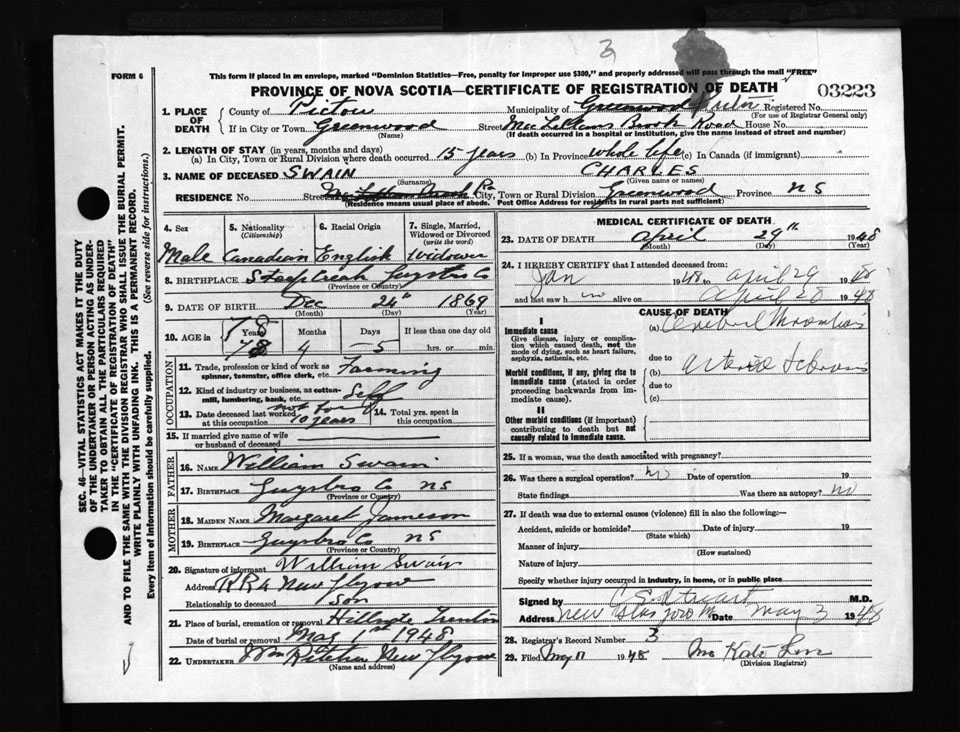 3
FORM 6
This form if placed in an envelope, marked "Dominion Statistics—Free, penalty for improper use $300," and properly addressed will pass through the mail "FREE"
PROVINCE OF NOVA SCOTIA—CERTIFICATE OF REGISTRATION OF DEATH
03223
1. PLACE OF DEATH
County of Pictou
Municipality of Greenwood Pictou Registered No.
(For use of Registrar General only)
If in City or Town Greenwood Street MacLellans Brook Road House No.
(Name) (If death occurred in a hospital or institution, give the name instead of street and number)
2. LENGTH OF STAY (in years, months and days)
(a) In City, Town or Rural Division where death occurred 15 years (b) In Province whole life (c) In Canada (if immigrant)
3. NAME OF DECEASED SWAIN CHARLES
(Surname) (Given name or names)
RESIDENCE No. Street MacLellans Brook Rd City, Town or Rural Division Greenwood Province NS
(Residence means usual place of abode. Post Office Address for residents in rural parts not sufficient)
4. Sex 5. Nationality (Citizenship) 6. Racial Origin 7. Single, Married, Widowed or Divorced (write the word)
Male Canadian English Widower
8. BIRTHPLACE Guysbro Co
(Province or Country)
9. DATE OF BIRTH Dec 24th 1869
(Month) (Day) (Year)
10. AGE in Years Months Days If less than one day old
78
78 4 5 hrs. or min.
OCCUPATION
11. Trade, profession or kind of work as spinner, teamster, office clerk, etc. Farming
12. Kind of industry or business, as cotton-mill, lumbering, bank, etc. Self
13. Date deceased last worked at this occupation not for 10 years
14. Total yrs. spent in this occupation
15. If married give name of wife or husband of deceased
FATHER
16. NAME William Swain
17. BIRTHPLACE Guysbro Co NS
(Province or Country)
MOTHER
18. MAIDEN NAME Margaret Jameson
19. BIRTHPLACE Guysbro Co NS
(Province or Country)
20. Signature of informant William Swain
Address RR4 New Glasgow
Relationship to deceased Son
21. Place of burial, cremation or removal Hillside Trenton
Date of burial or removal May 1st 1948
22. UNDERTAKER Wm New Glasgow
(Name and address)
MEDICAL CERTIFICATE OF DEATH
23. DATE OF DEATH April 29th 1948
(Month) (Day) (Year)
24. I HEREBY CERTIFY that I attended deceased from:
Jan 1948 to April 29 1948
and last saw him alive on April 28 1948
CAUSE OF DEATH
I
Immediate cause
Give disease, injury or complication which caused death, not the mode of dying, such as heart failure, asphyxia, asthenia, etc.
(a) Cerebral Thrombosis
due to
Morbid conditions, if any, giving rise to immediate cause (stated in order proceeding backwards from immediate cause).
(b) Arterio Sclerosis
due to
(c)
II
Other morbid conditions (if important) contributing to death but not causally related to immediate cause.
25. If a woman, was the death associated with pregnancy?
26. Was there a surgical operation? no Date of operation 19
State findings Was there an autopsy? no
27. If death was due to external causes (violence) fill in also the following:—
Accident, suicide or homicide? Date of injury 19
(State which)
Manner of injury
(How sustained)
Nature of injury
Specify whether injury occurred in industry, in home, or in public place
Signed by C S Stuart M.D.
Address New Glasgow Date May 3 1948
28. Registrar's Record Number 3
29. Filed May 11 1948 Mrs Kate
(Division Registrar)
SEC. 46—VITAL STATISTICS ACT MAKES IT THE DUTY
OF THE UNDERTAKER OR PERSON ACTING AS UNDER-
TAKER TO OBTAIN ALL THE PARTICULARS REQUIRED
IN THE "CERTIFICATE OF REGISTRATION OF DEATH"
AND TO FILE THE SAME WITH THE DIVISION REGISTRAR WHO SHALL ISSUE THE BURIAL PERMIT.
WRITE PLAINLY WITH UNFADING INK. THIS IS A PERMANENT RECORD.
Every item of information should be carefully supplied. (See reverse side for instructions.)